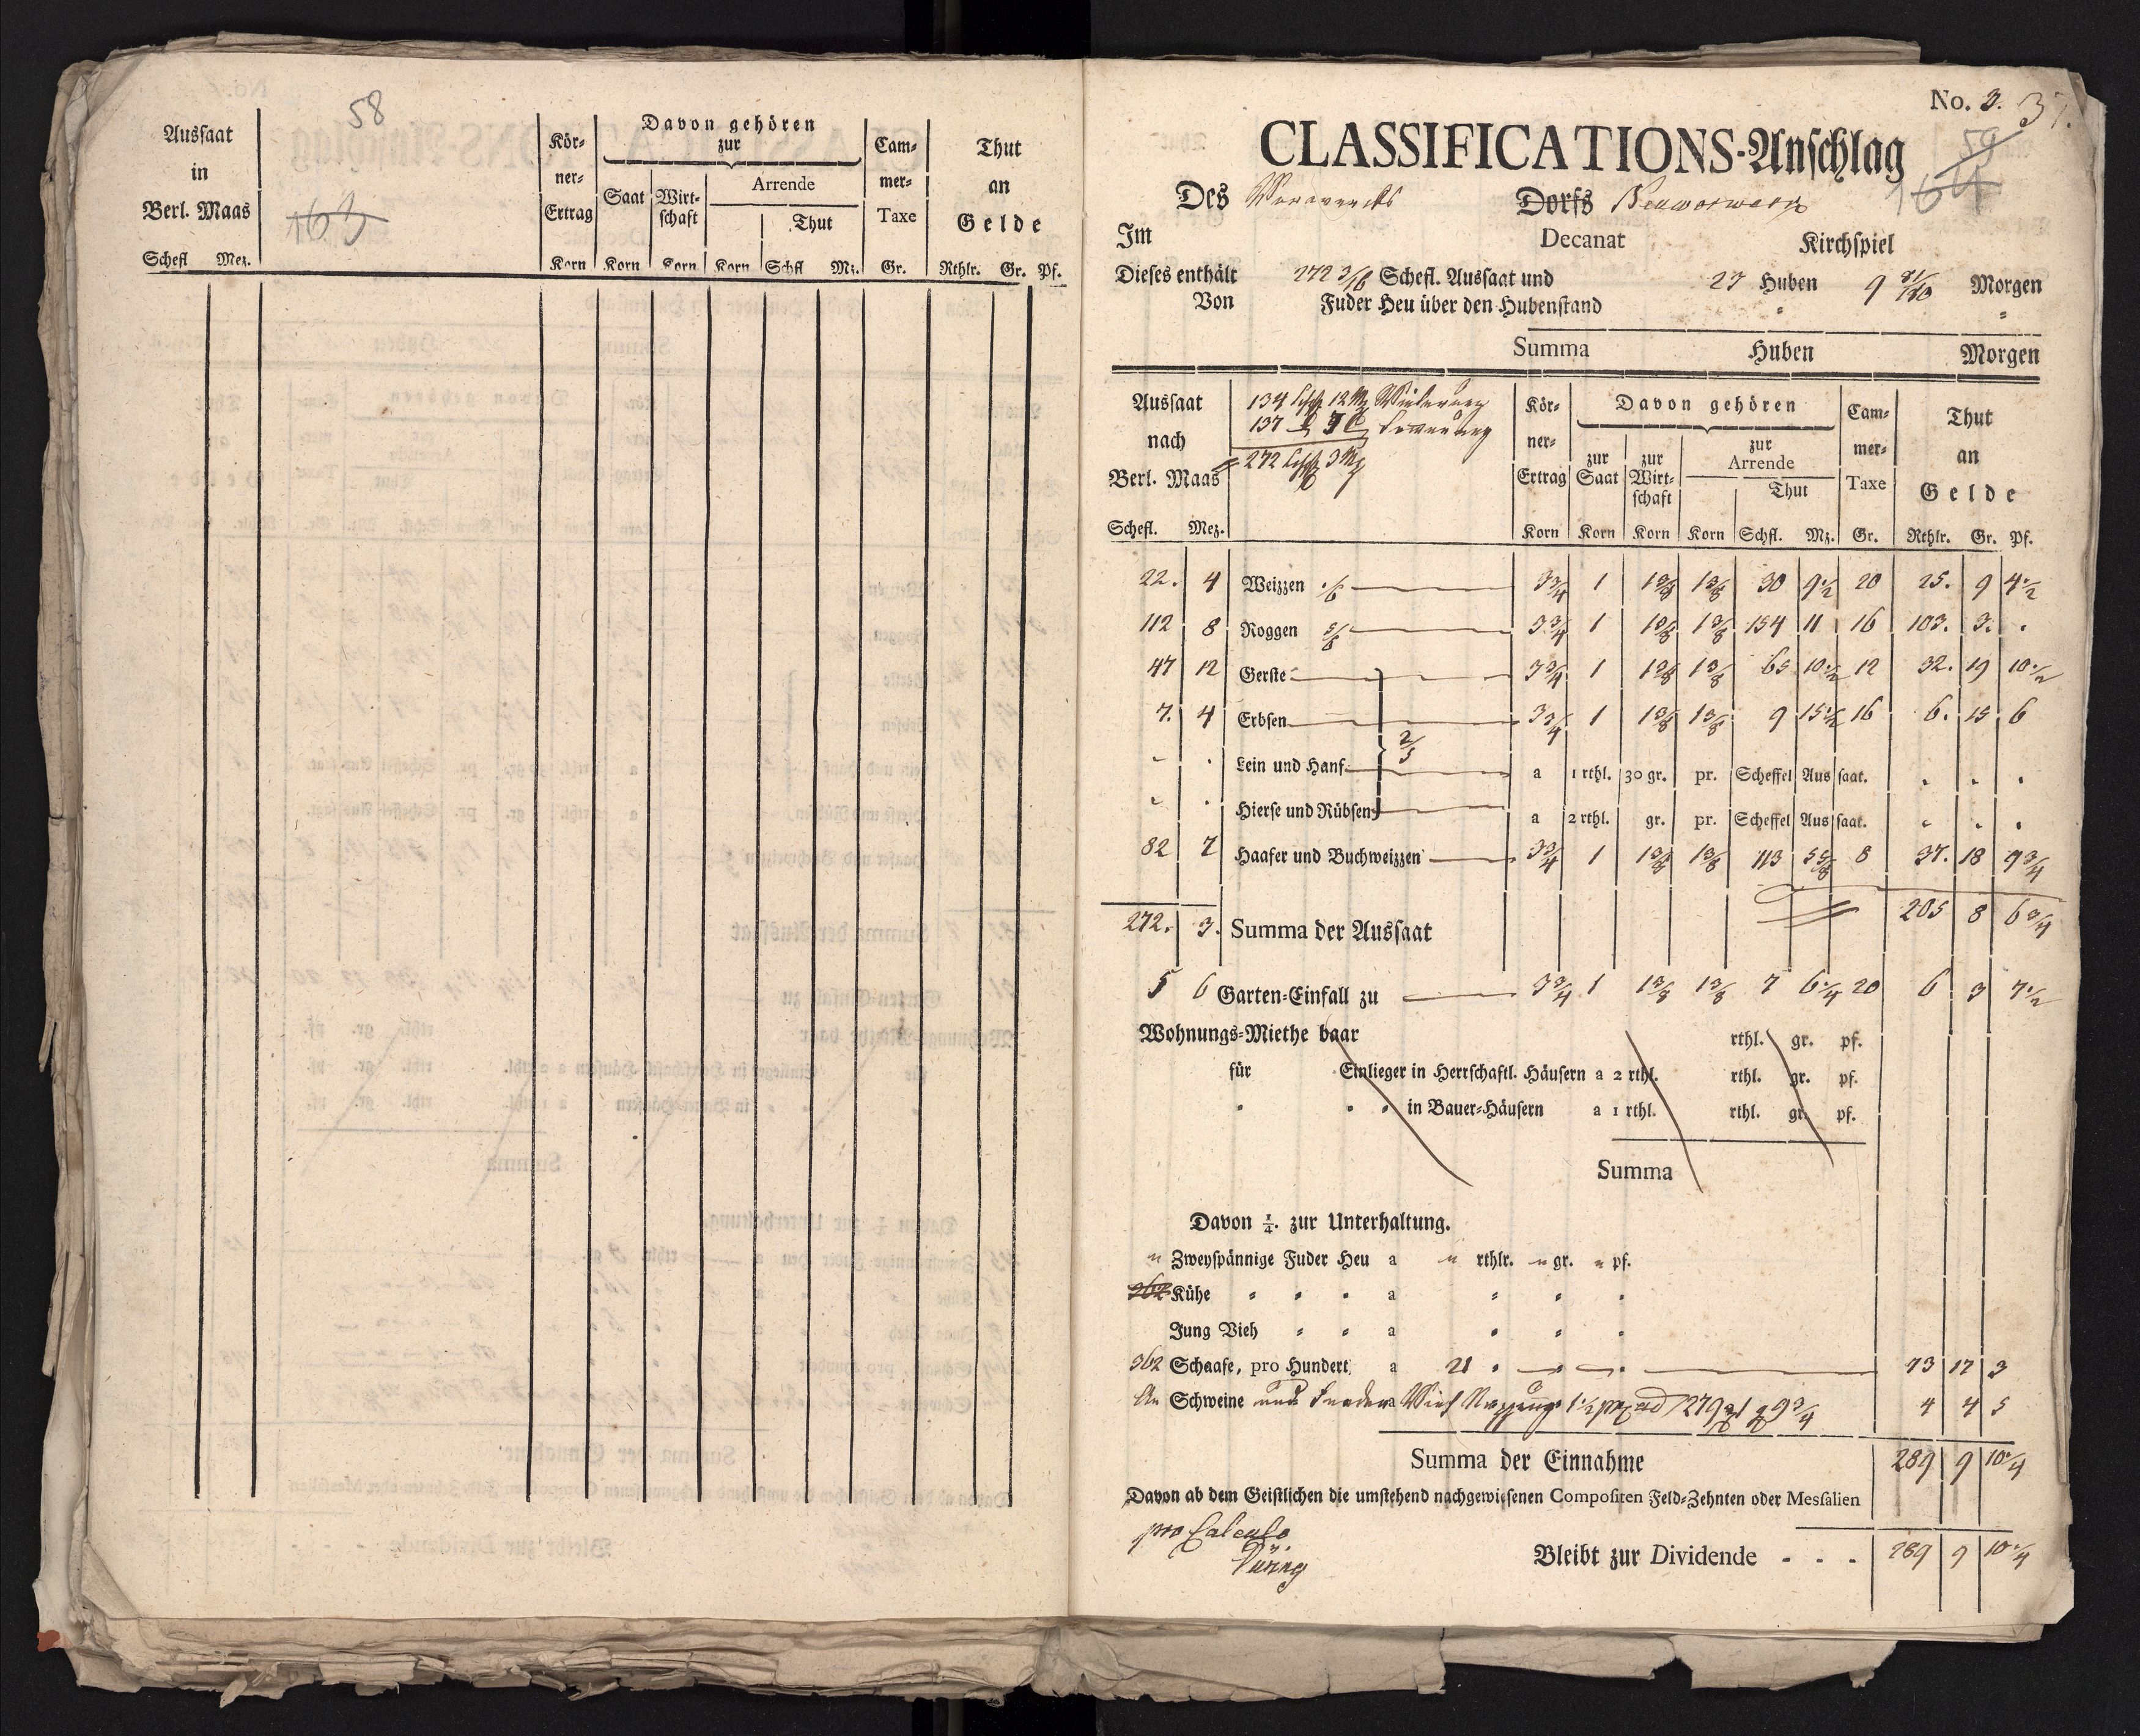 58
163
Aussaat
in
Berl. Maas
Schefl Mez.
Kör-
ner-
Ertrag
Korn
Davon gehören
zur
Saat
Wirt-
schaft
Arrende
Thut
Korn Korn Korn Schfl Mz.
Cam-
mer-
Taxe
Gr.
Thut
an
Gelde
Rthlr. Gr. Pf.
No. 3. 37.
CLASSIFICATIONS-Anschlag
59
164
Des Vorwercks Dorfs
Im Decanat Kirchspiel
Dieses enthält 272 3/16 Schefl. Aussaat und 27 Huben 9 Morgen
Von Fuder Heu über den Hubenstand
Summa Huben Morgen
Aussaat
nach
Berl. Maas
Schefl. Mez.
134 Schfl 12 Mz
137
272 Schfl 3 Mz
Kör-
ner-
Ertrag
Korn
Davon gehören
zur
Saat
Korn
zur
Wirt-
schaft
Korn
zur
Arrende
Thut
Korn Schfl. Mz.
Cam-
mer-
Taxe
Gr.
Thut
an
Gelde
Rthlr. Gr. Pf.
22. 4 Weizzen 1/6 3 3/4 1 1 3/8 1 3/8 30 9 1/2 20 25. 9 4 1/2
112 8 Roggen 5/6 3 3/4 1 1 3/8 1 3/8 154 11 16 103. 3. .
47 12 Gerste 3 3/4 1 1 3/8 1 3/8 65 10 1/2 12 32. 19 10 1/2
7. 4 Erbsen 3 3/4 1 1 3/8 1 3/8 9 15 1/2 16 6. 15 6
Lein und Hanf 2/5 a 1 rthl. 30 gr. pr. Scheffel Aussaat.
Hierse und Rübsen a 2 rthl. gr. pr. Scheffel Aussaat.
82 7 Haafer und Buchweizzen 3 3/4 1 1 3/8 1 3/8 113 5 5/8 8 37. 18 9 3/4
272. 3. Summa der Aussaat 205 8 6 3/4
5 6 Garten-Einfall zu 3 3/4 1 1 3/8 1 3/8 7 6 1/4 20 6 3 7 1/2
Wohnungs-Miethe baar rthl. gr. pf.
für Einlieger in Herrschaftl. Häusern a 2 rthl. rthl. gr. pf.
in Bauer-Häusern a 1 rthl. rthl. gr. pf.
Summa
Davon 1/4. zur Unterhaltung.
Zweyspännige Fuder Heu a rthlr. gr. pf.
362 Kühe a
Jung Vieh a
362 Schaafe, pro Hundert a 21 73 17 3
An Schweine und Feder Vieh Nuzzung 4 4 5
Summa der Einnahme 289 9 10 1/4
Davon ab dem Geistlichen die umstehend nachgewiesenen Compositen Feld-Zehnten oder Messalien
pro Calculo
Bleibt zur Dividende - - - 289 9 10 1/4